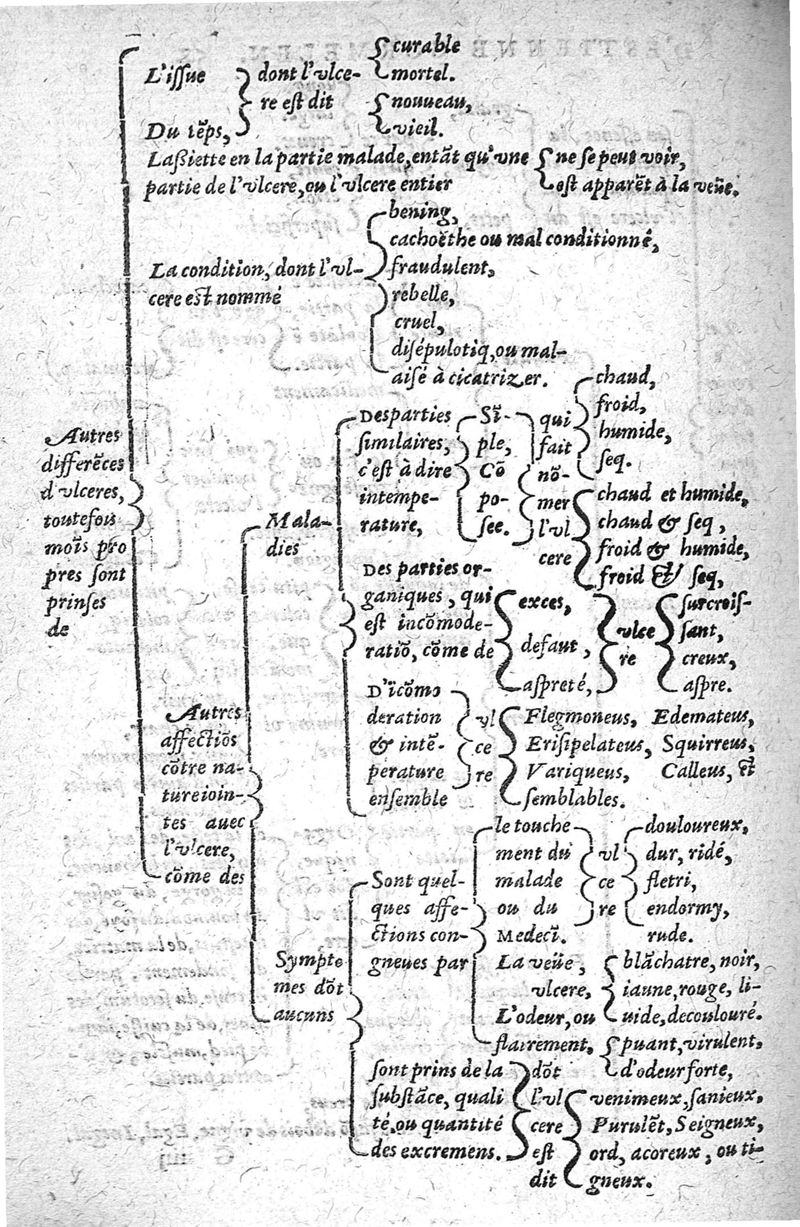 Autres
differẽces
d'vlceres,
toutefois
moĩs pro
pres sont
prinses
de
L'issue
Du tẽps,
dont l'vlce-
re est dit
curable
mortel.
nouueau,
vieil.
Lassiette en la partie malade, entãt qu'vne
partie de l'vlcere, ou l'vlcere entier
ne se peut voir,
est apparẽt à la veüe.
La condition, dont l'vl-
cere est nommé
bening,
cachoëthe ou mal conditionné,
fraudulent,
rebelle,
cruel,
disépulotiq, ou mal-
aisé à cicatrizer.
Autres
affectiõs
cõtre na-
ture ioin-
tes auec
l'vlcere,
cõme des
Mala-
dies
Des parties
similaires,
c'est à dire
intempe-
rature,
Sĩ-
ple,
Cõ
po-
see.
qui
fait
nõ-
mer
l'vl
cere
chaud,
froid,
humide,
seq.
chaud et humide,
chaud & seq,
froid & humide,
froid & seq,
Des parties or-
ganiques, qui
est incõmode-
ratiõ, cõme de
exces,
defaut,
aspreté,
vlce
re
surcrois-
sant,
creux,
aspre.
D'ĩcõmo
deration
& intẽ-
perature
ensemble
vl
ce
re
Flegmoneus, Edemateus,
Erisipelateus, Squirreus,
Variqueus, Calleus, &
semblables.
Sympto
mes dõt
aucuns
Sont quel-
ques affe-
ctions con-
gneues par
le touche
ment du
malade
ou du
Medecĩ.
vl
ce
re
douloureux,
dur, ridé,
fletri,
endormy,
rude.
La veüe,
vlcere,
blãchatre, noir,
iaune, rouge, li-
uide, decoulouré.
L'odeur, ou
flairement,
dõt
l'vl
cere
est
dit
puant, virulent,
d'odeur forte,
sont prins de la
substãce, quali
té, ou quantité
des excremens.
venimeux, sanieux,
Purulẽt, Seigneux,
ord, acoreux, ou ti-
gneux.